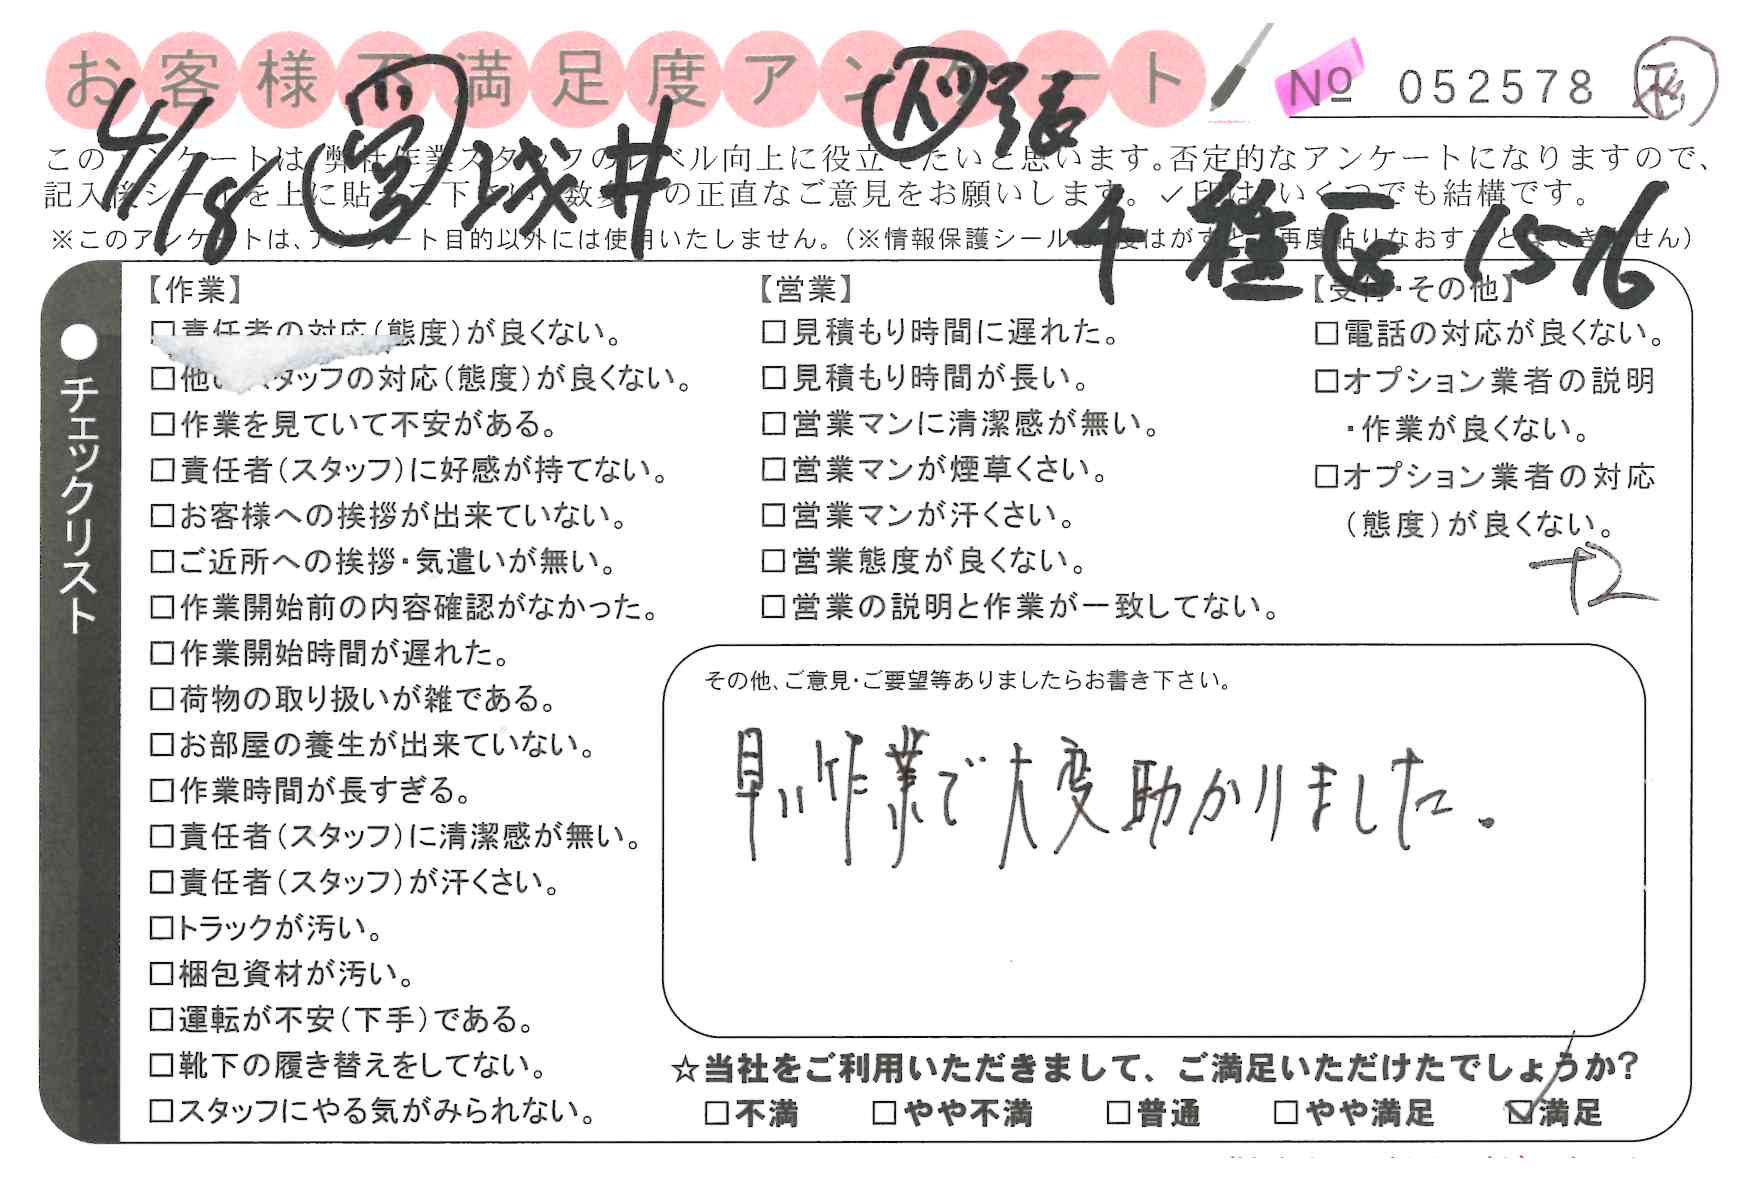 お客様不満足度アンケート
No 052578
4/18 営 浅井 張
千種区 1516
このアンケートは、弊社作業スタッフのレベル向上に役立てたいと思います。否定的なアンケートになりますので、
記入後シールを上に貼って下さい。数多くの正直なご意見をお願いします。✓印は、いくつでも結構です。
※このアンケートは、アンケート目的以外には使用いたしません。(※情報保護シールは一度はがすと、再度貼りなおすことはできません)
●チェックリスト
【作業】
□責任者の対応(態度)が良くない。
□他のスタッフの対応(態度)が良くない。
□作業を見ていて不安がある。
□責任者(スタッフ)に好感が持てない。
□お客様への挨拶が出来ていない。
□ご近所への挨拶・気遣いが無い。
□作業開始前の内容確認がなかった。
□作業開始時間が遅れた。
□荷物の取り扱いが雑である。
□お部屋の養生が出来ていない。
□作業時間が長すぎる。
□責任者(スタッフ)に清潔感が無い。
□責任者(スタッフ)が汗くさい。
□トラックが汚い。
□梱包資材が汚い。
□運転が不安(下手)である。
□靴下の履き替えをしてない。
□スタッフにやる気がみられない。
【営業】
□見積もり時間に遅れた。
□見積もり時間が長い。
□営業マンに清潔感が無い。
□営業マンが煙草くさい。
□営業マンが汗くさい。
□営業態度が良くない。
□営業の説明と作業が一致してない。
【受付・その他】
□電話の対応が良くない。
□オプション業者の説明
・作業が良くない。
□オプション業者の対応
(態度)が良くない。
その他、ご意見・ご要望等ありましたらお書き下さい。
早い作業で大変助かりました。
☆当社をご利用いただきまして、ご満足いただけたでしょうか?
□不満 □やや不満 □普通 □やや満足 ☑満足